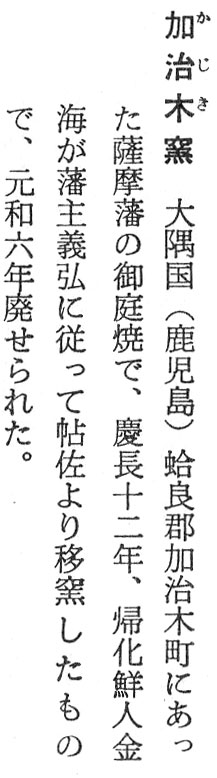 加治木窯　大隅国（鹿児島）蛤良郡加治木町にあっ
た薩摩藩の御庭焼で、慶長十二年、帰化鮮人金
海が藩主義弘に従って帖佐より移窯したもの
で、元和六年廃せられた。
かじき